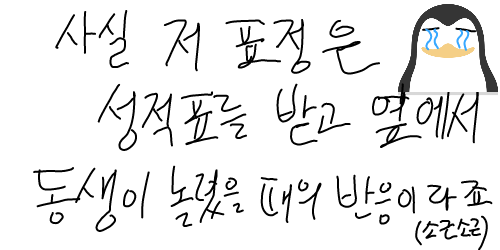 사실 저 표정은
성적표를 받고 옆에서
동생이 놀렸을 때의 반응이라죠
(소근소근)